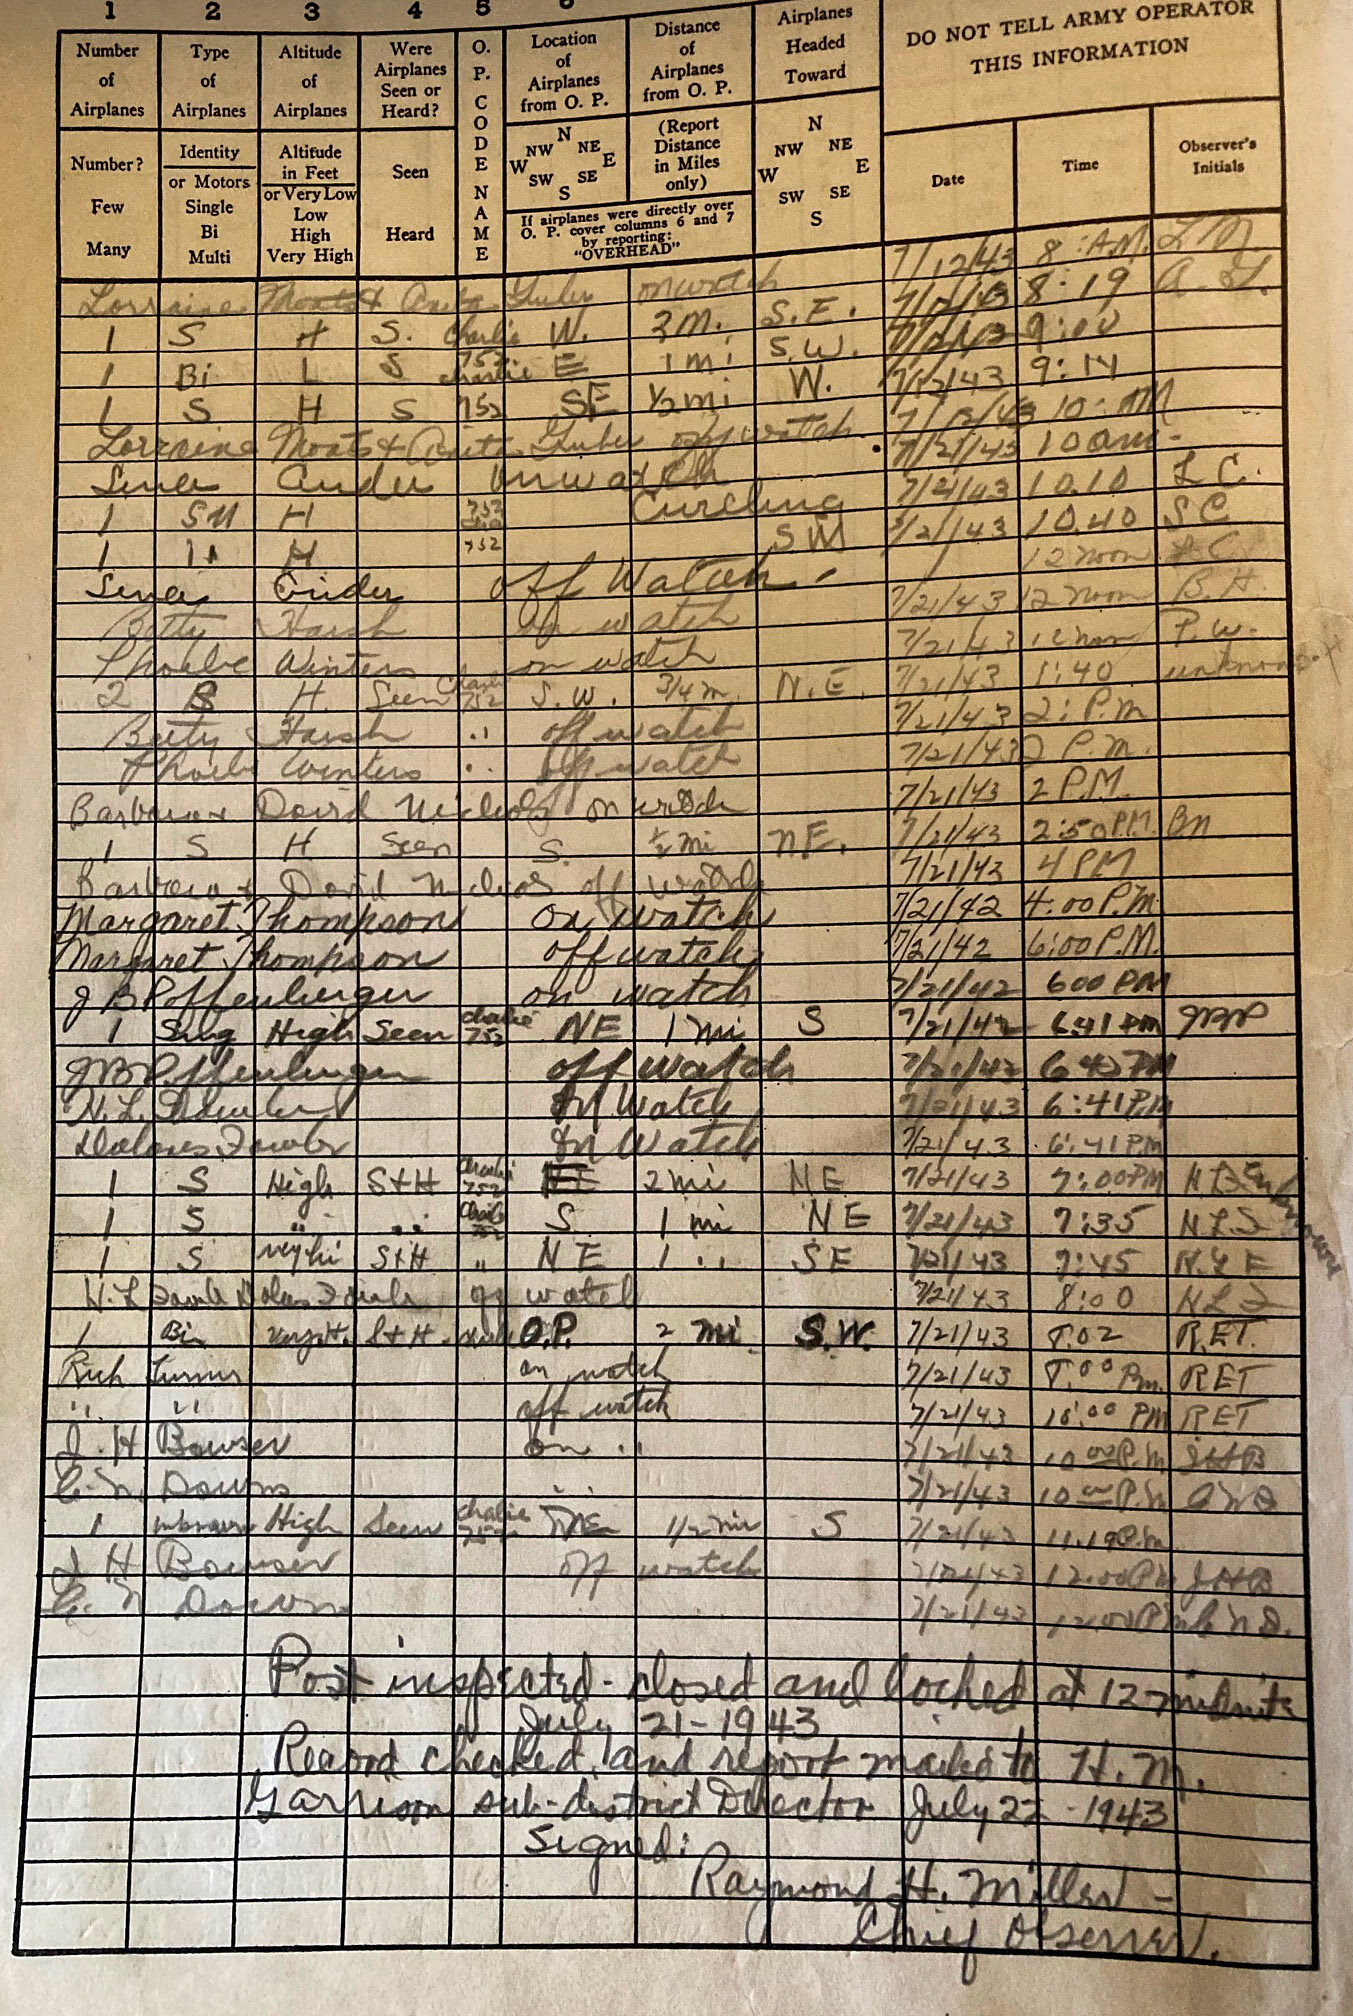 1 2 3 4 5 6
Number of Airplanes
Type of Airplanes
Altitude of Airplanes
Were Airplanes Seen or Heard?
O. P. CODE NAME
Location of Airplanes from O. P.
Distance of Airplanes from O. P.
Airplanes Headed Toward
DO NOT TELL ARMY OPERATOR THIS INFORMATION
Number? Few Many
Identity or Motors Single Bi Multi
Altitude in Feet or Very Low Low High Very High
Seen Heard
N NW NE W E SW SE S
(Report Distance in Miles only)
If airplanes were directly over O. P. cover columns 6 and 7 by reporting: "OVERHEAD"
N NW NE W E SW SE S
Date
Time
Observer's Initials
Lorraine Moats & Anita on watch 8 : A.M. L M.
1 S H S. Charlie W. 2 M. S.E. 8:19
1 Bi L S 752 Charlie E 1 mi S.W. 9:00
1 S H S 752 SE 1/2 mi W. 7/12/43 9:14
Lorraine Moats & Anita off watch 10: AM
on watch 7/21/43 10 am-
1 H 752 Circling 10.10 L C.
1 " H 752 7/21/43 10.40 S C
off Watch 12 noon
Betty Harsh on watch 7/21/43 12 noon B. H.
Phoebe Winters on watch 7/21/43 P. W.
2 B H. Seen Charlie 752 S. W. 3/4 m. N. E. 7/21/43 1:40 unknown
Betty Harsh " off watch 7/21/43 2: P.M
Phoebe Winters " off watch 7/21/43 2 P.M.
Barbara & David Nichols on watch 7/21/43 2 P.M.
1 S H Seen S. 1/2 mi NE. 7/21/43 2:50 P.M. BN
Barbara & David Nichols off watch 7/21/43 4 PM
Margaret Thompson on watch 7/21/42 4:00 P.M.
Margaret Thompson off watch 7/21/42 6:00 P.M.
J B Poffenberger on watch 7/21/42 600 PM
1 Sing High Seen Charlie 752 NE 1 mi S 7/21/42 6:41 PM JBP
J B Poffenberger off watch 7/21/42 PM
H. L. On Watch 7/21/43 6:41 P.M
On Watch 7/21/43 6:41 P.M
1 S High S+H Charlie 752 2 mi NE 7/21/43 7:00 PM Unknown
1 S " " Charlie S 1 mi NE 7/21/43 7:35
1 S S+H " NE 1 " SE 7/21/43 7:45
H. L. off watch 7/21/43 8:00
1 Bi S+H O.P. 2 mi S.W. 7/21/43 8.02 R.E.T.
Rich Turner on watch 7/21/43 8:00 Pm. RET
" " off watch 7/21/43 10:00 PM RET
J. H Bowser on " 7/21/43 10 00 P.M JHB
C. N. Downs " 7/21/43 10 00 P.M
1 unknown High Seen Charlie 752 NE 1/2 mi S 7/21/43 11.19 P.m.
J H Bowser off watch 7/21/43 12:00 Pm JHB
C. N Downs 7/21/43 12:00 Pm C N D.
Post inspected - closed and locked at 12 midnite
July 21 - 1943
Record checked and report mailed to H. M.
Garrison sub-district Director July 22 - 1943
Signed:
Raymond H. Miller -
Chief Observer.